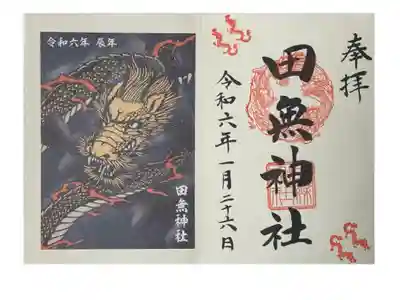 令和六年 辰年
田無神社
奉拝
田無神社
令和六年一月二十六日